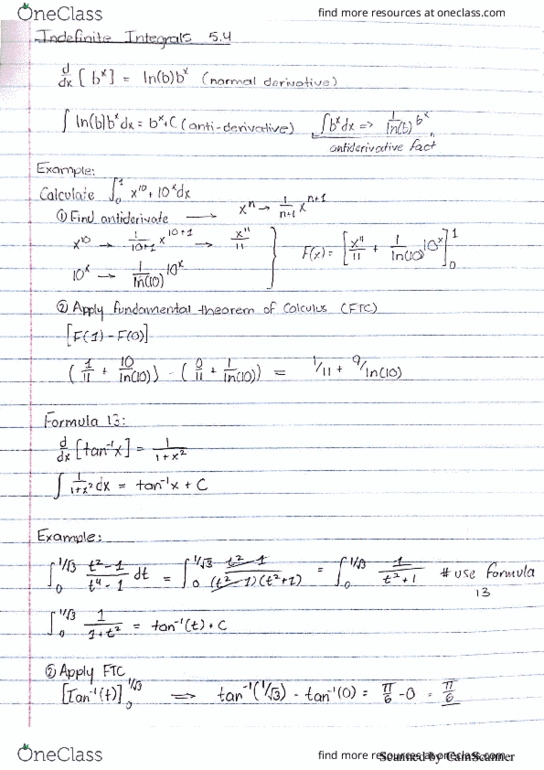 OneClass find more resources at oneclass.com
Indefinite Integrals 5.4
d/dx [b^x] = ln(b)b^x (normal derivative)
∫ ln(b)b^x dx = b^x + C (anti-derivative) ∫b^x dx => 1/ln(b) b^x
antiderivative fact
Example:
Calculate ∫_0^1 x^10 + 10^x dx
① Find antiderivate → x^n → 1/n+1 x^n+1
x^10 → 1/10+1 x^10+1 → x^11/11
10^x → 1/ln(10) 10^x
F(x) = [x^11/11 + 1/ln(10) 10^x]_0^1
② Apply fundamental theorem of Calculus (FTC)
[F(1) - F(0)]
(1/11 + 10/ln(10)) - (0/11 + 1/ln(10)) = 1/11 + 9/ln(10)
Formula 13:
d/dx [tan^-1 x] = 1/1+x^2
∫ 1/1+x^2 dx = tan^-1 x + C
Example:
∫_0^1/√3 t^2-1/t^4-1 dt = ∫_0^1/√3 t^2-1/(t^2-1)(t^2+1) = ∫_0^1/√3 1/t^2+1 # use formula
13
∫_0^1/√3 1/1+t^2 = tan^-1(t) + C
② Apply FTC
[Tan^-1(t)]_0^1/√3 => tan^-1(1/√3) - tan^-1(0) = π/6 - 0 = π/6
OneClass find more resources at oneclass.com
Scanned by CamScanner